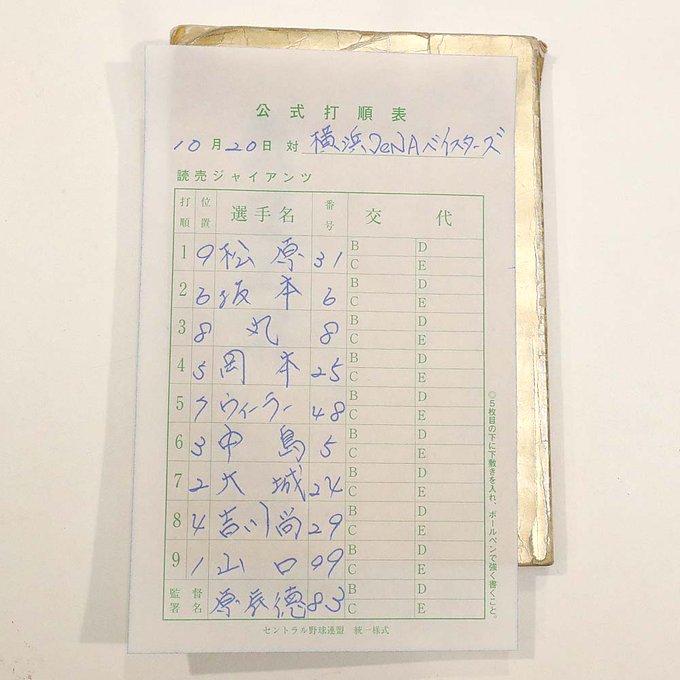 公式打順表
10月20日 対 横浜DeNAベイスターズ
読売ジャイアンツ
打順 位置 選手名 番号 交代
1 9 松原 31 B D C E
2 6 坂本 6 B D C E
3 8 丸 8 B D C E
4 5 岡本 25 B D C E
5 7 ウィーラー 48 B D C E
6 3 中島 5 B D C E
7 2 大城 24 B D C E
8 4 吉川尚 29 B D C E
9 1 山口 99 B D C E
監督署名 原辰徳 83 B D C E
セントラル野球連盟 統一様式
◎5枚目の下に下敷きを入れ、ボールペンで強く書くこと。